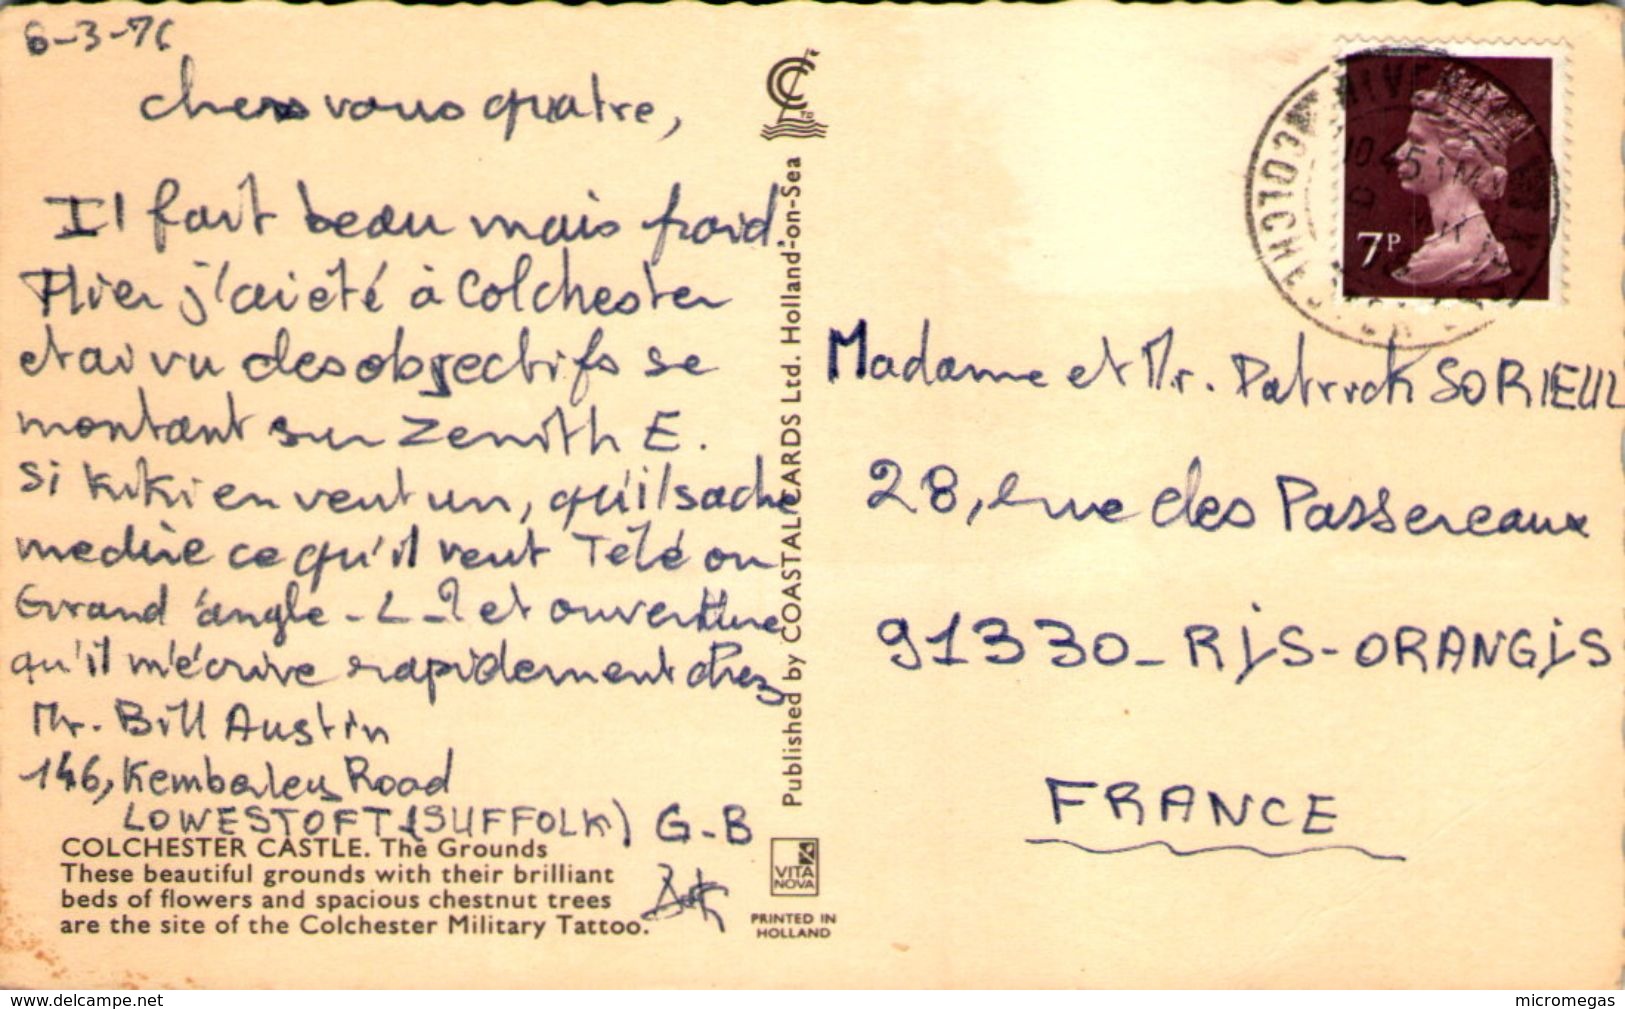 6-3-76
chers vous quatre,
Il fait beau mais froid.
Hier j'ai été à Colchester
et ai vu des objectifs se
montant sur Zenith E.
Si Kiki en veut un, qu'il sache
me dire ce qu'il veut Télé ou
Grand angle - L-? et ouverture
qu'il m'écrive rapidement chez
Mr. Bill Austin
146, Kemberley Road
LOWESTOFT (SUFFOLK) G-B
COLCHESTER CASTLE. The Grounds
These beautiful grounds with their brilliant
beds of flowers and spacious chestnut trees
are the site of the Colchester Military Tattoo.
Published by COASTAL CARDS Ltd. Holland-on-Sea
VITA
NOVA
PRINTED IN
HOLLAND
7P
COLCHESTER
Madame et Mr. Patrick SORIEUL
28, rue des Passereaux
91330 - RIS-ORANGIS
FRANCE
www.delcampe.net
micromegas